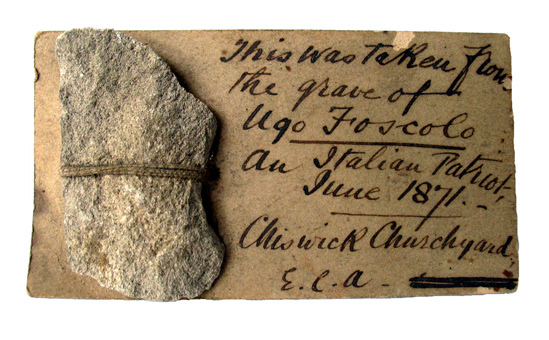 This was taken from
the grave of
Ugo Foscolo
an Italian Patriot,
June 1871.-
Chiswick Churchyard
E.C.A-